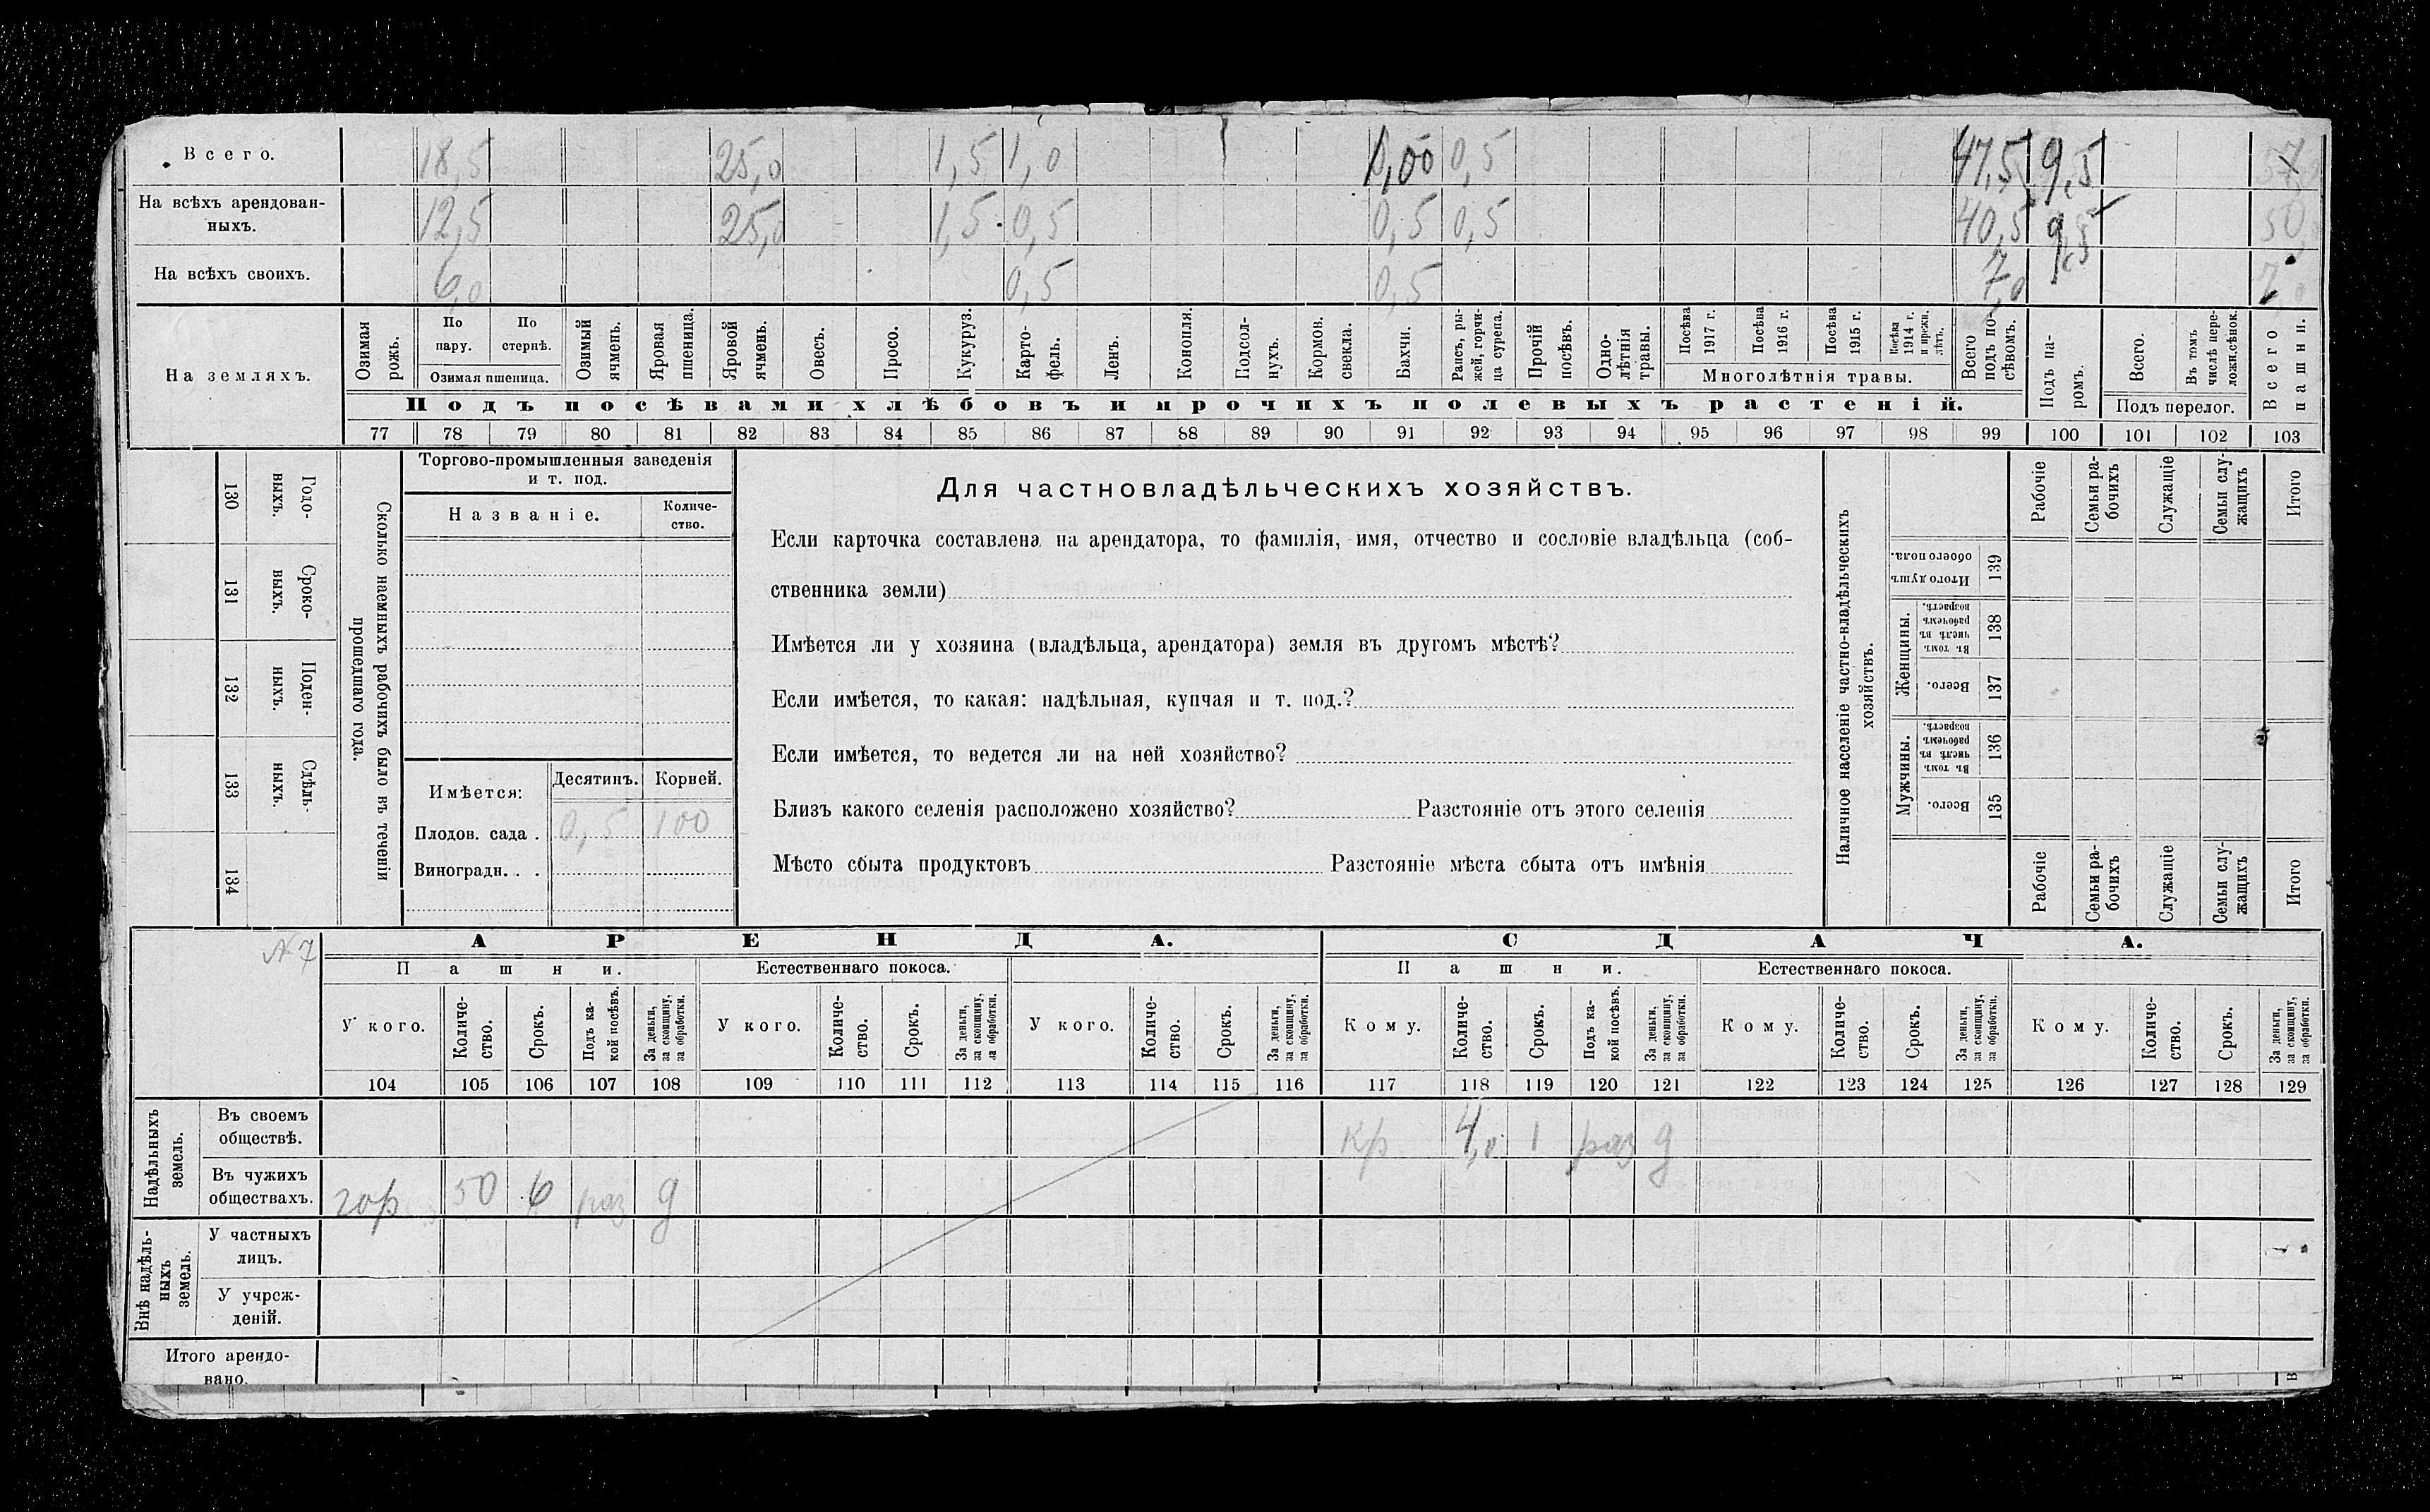 Всего. 18,5 25,0 1,5 1,0 1,00 0,5 47,5 9,5
На всѣхъ арендован-
ныхъ. 12,5 25,0 1,5 0,5 0,5 0,5 40,5 9,5 50,
На всѣхъ своихъ. 6,0 0,5 0,5 7,0 7,0
На земляхъ.
Озимая рожь.
По пару.
По стернѣ.
Озимая пшеница.
Озимый ячмень.
Яровая пшеница.
Яровой ячмень.
Овесъ.
Просо.
Кукуруз.
Карто-
фель.
Ленъ.
Конопля.
Подсол-
нухъ.
Кормов. свекла.
Бахчи.
Рапсъ, ры-
жей, горчи-
ца сурепа.
Прочій посѣвъ.
Одно-
лѣтнія травы.
Посѣва 1917 г.
Посѣва 1916 г.
Посѣва 1915 г.
Посѣва 1914 г. и прежн. лѣтъ.
Многолѣтнія травы.
Всего подъ по-
сѣвомъ.
Подъ па-
ромъ.
Всего.
Въ томъ числѣ пере-
ложн.сѣнок.
Подъ перелог.
Всего пашни.
Подъ посѣвами хлѣбовъ и прочихъ полевыхъ растеній.
77 78 79 80 81 82 83 84 85 86 87 88 89 90 91 92 93 94 95 96 97 98 99 100 101 102 103
130 Годо-
выхъ.
131 Сроко-
выхъ.
132 Поден-
ныхъ.
133 Сдѣль-
ныхъ.
134
Сколько наемныхъ рабочихъ было въ теченіи
прошедшаго года.
Торгово-промышленныя заведенія
и т. под.
Названіе. Количе-
ство.
Имѣется: Десятинъ. Корней.
Плодов. сада . 0,5 100
Виноградн. . .
Для частновладѣльческихъ хозяйствъ.
Если карточка составлена на арендатора, то фамилія, имя, отчество и сословіе владѣльца (соб-
ственника земли)
Имѣется ли у хозяина (владѣльца, арендатора) земля въ другомъ мѣстѣ?
Если имѣется, то какая: надѣльная, купчая и т. под.?
Если имѣется, то ведется ли на ней хозяйство?
Близъ какого селенія расположено хозяйство? Разстояніе отъ этого селенія
Мѣсто сбыта продуктовъ Разстояніе мѣста сбыта отъ имѣнія
Наличное населеніе частно-владѣльческихъ
хозяйствъ.
Рабочіе
Семьи ра-
бочихъ
Служащіе
Семьи слу-
жащихъ
Итого
Итого душъ обоего пола. 139
Женщины.
Въ томъ числѣ въ рабочемъ возрастѣ. 138
Всего. 137
Мужчины.
Въ томъ числѣ въ рабочемъ возрастѣ. 136
Всего. 135
Рабочіе
Семьи ра-
бочихъ
Служащіе
Семьи слу-
жащихъ
Итого
№ 7
АРЕНДА. СДАЧА.
Пашни. Естественнаго покоса. Пашни. Естественнаго покоса.
У кого.
Количе-
ство.
Срокъ.
Подъ ка-
кой посѣвъ.
За деньги,
за скопщину,
за обработки.
У кого.
Количе-
ство.
Срокъ.
За деньги,
за скопщину,
за обработки.
У кого.
Количе-
ство.
Срокъ.
За деньги,
за скопщину,
за обработки.
Кому.
Количе-
ство.
Срокъ.
Подъ ка-
кой посѣвъ.
За деньги,
за скопщину,
за обработки.
Кому.
Количе-
ство.
Срокъ.
За деньги,
за скопщину,
за обработки.
Кому.
Количе-
ство.
Срокъ.
За деньги,
за скопщину,
за обработки.
104 105 106 107 108 109 110 111 112 113 114 115 116 117 118 119 120 121 122 123 124 125 126 127 128 129
Надѣльныхъ
земель.
Въ своемъ
обществѣ. кр 4,0 1 раз д
Въ чужихъ
обществахъ. гор 50 6 раз д
Внѣ надѣль-
ныхъ
земель.
У частныхъ
лицъ.
У учреж-
деній.
Итого арендо-
вано.